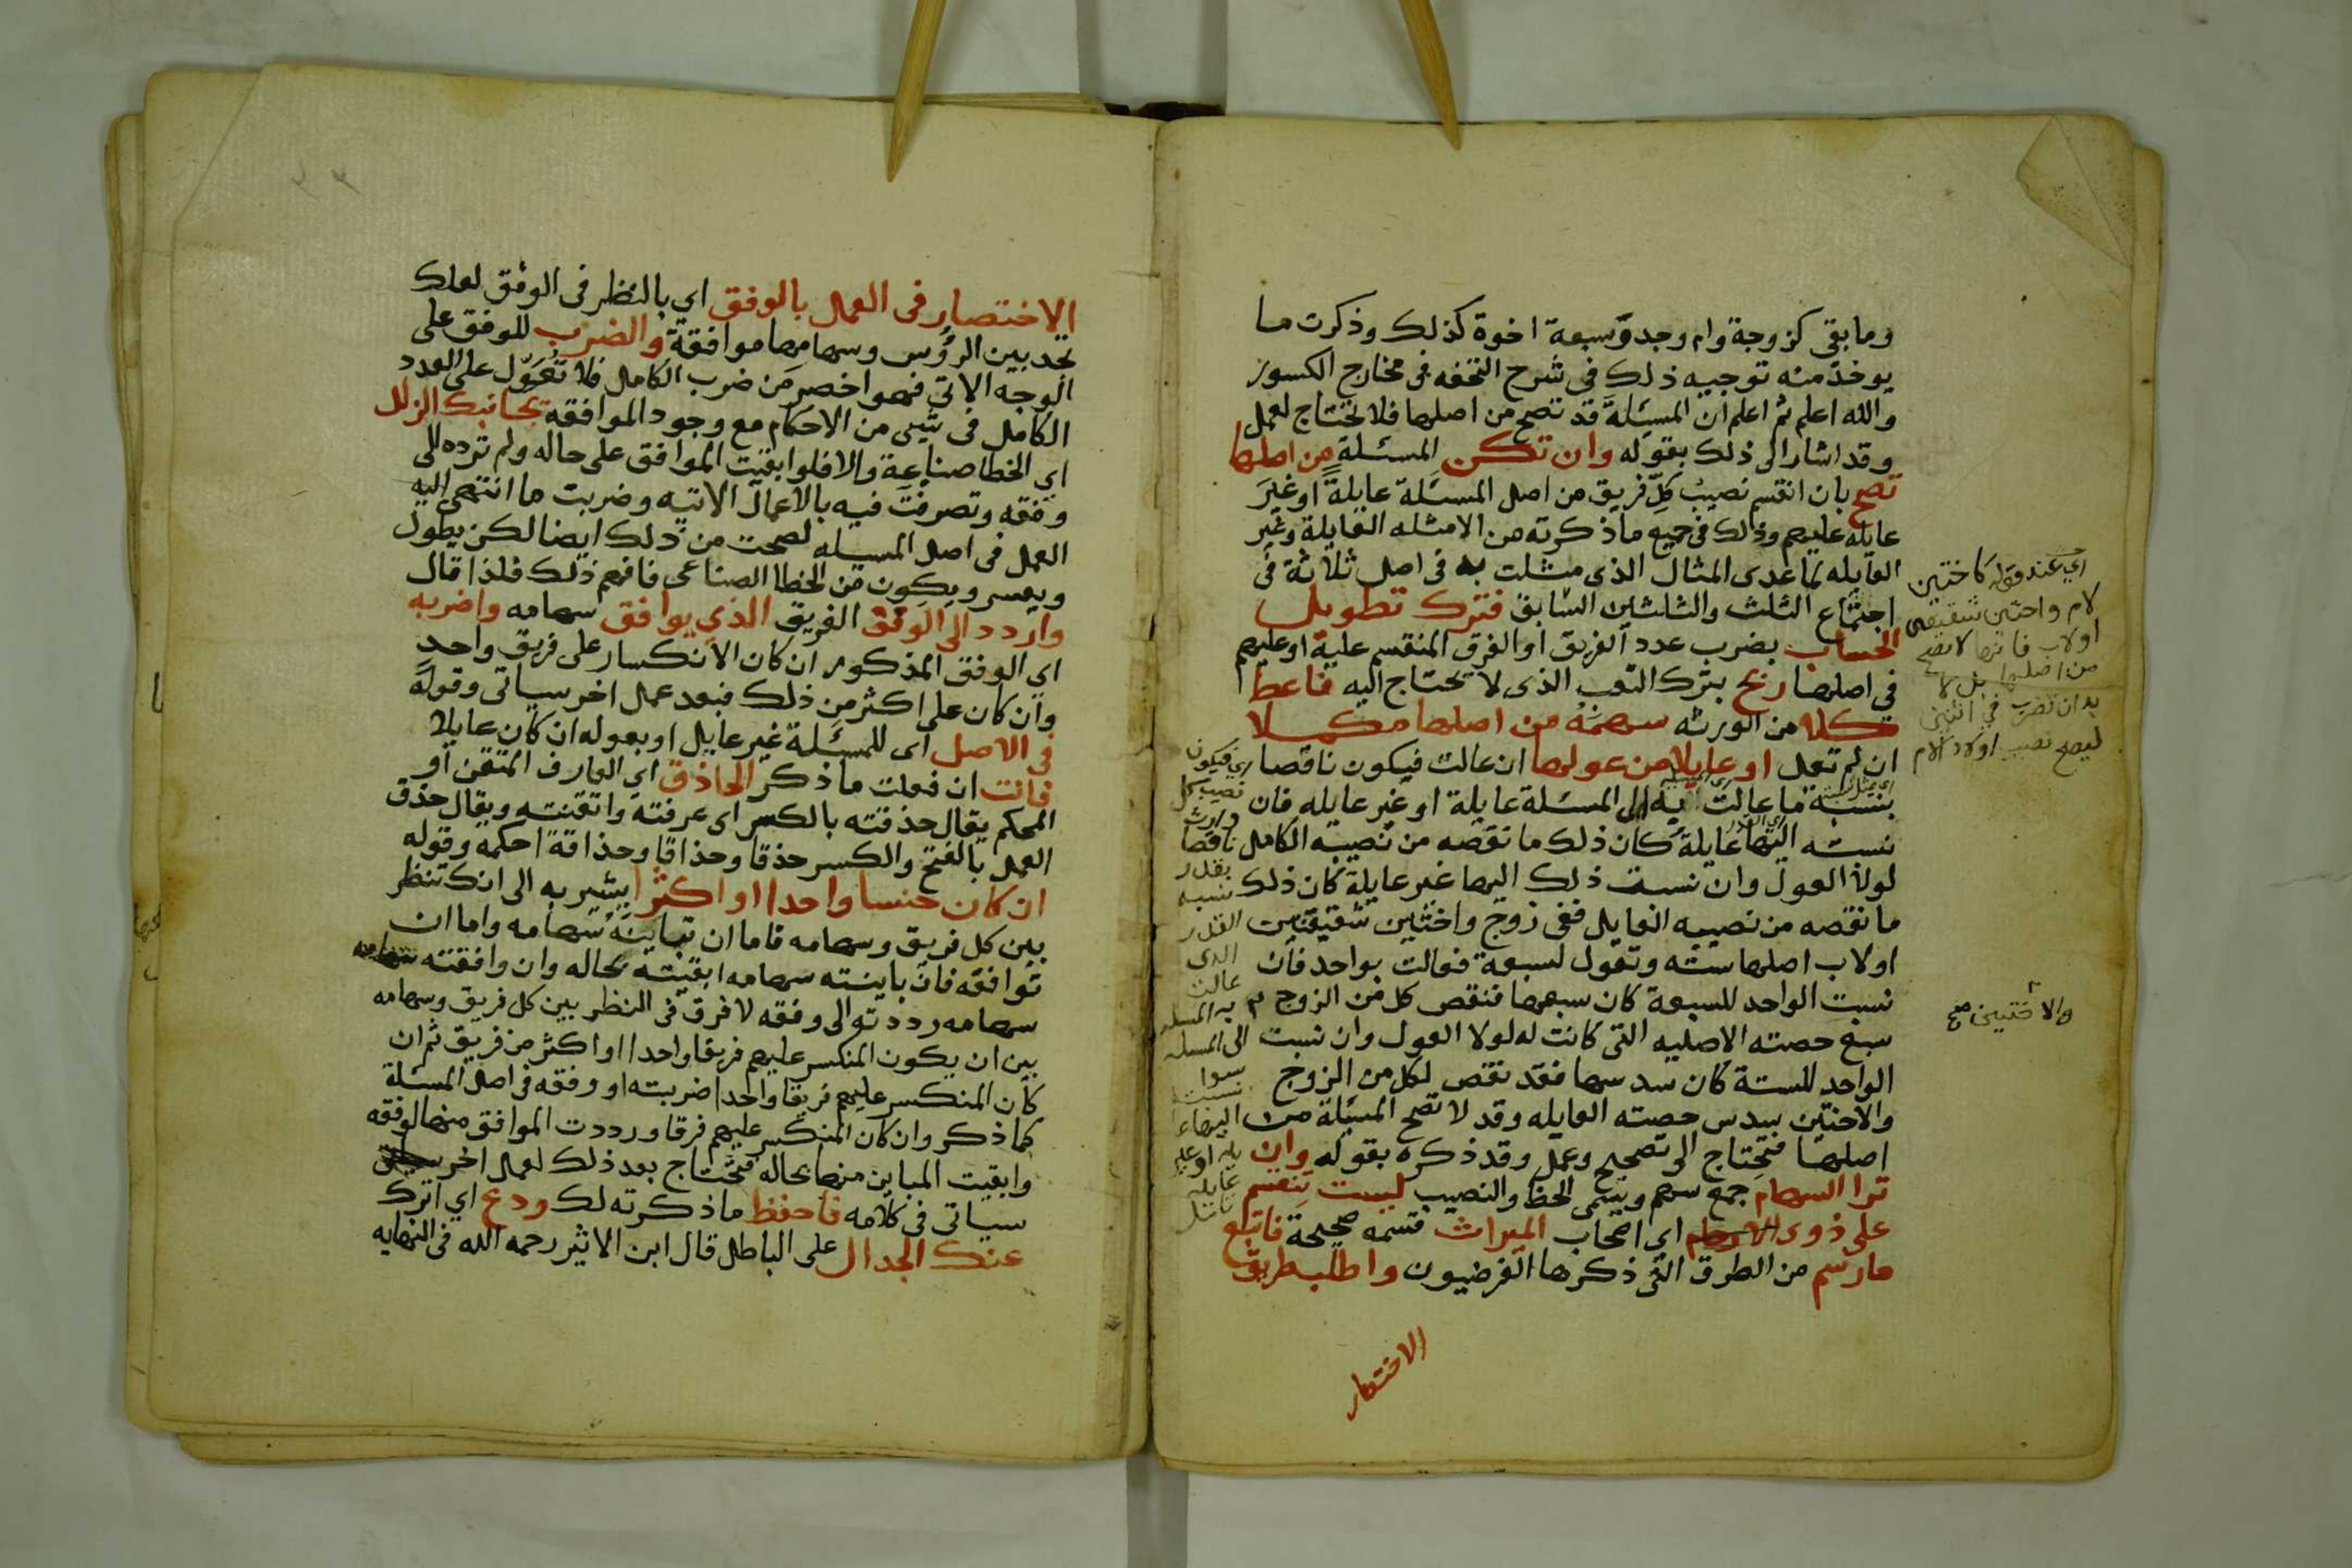 وما بقي كزوجة وام وجد وسبعة اخوة كذلك وذكرت ما
يوخذ منه توجيه ذلك في شرح التحفه في مخارج الكسور
والله اعلم ثم اعلم ان المسئلة قد تصح من اصلها فلا تحتاج لعمل
وقد اشار الى ذلك بقوله وان تكن المسئلة من اصلها
تصح بان انقسم نصيب كل فريق من اصل المسئلة عايلة او غير
عايله عليهم وذلك في جميع ما ذكرته من الامثله العايلة وغير
العايله ما عدى المثال الذي مثلت به في اصل ثلاثة في
اجتماع الثلث والثلثين السابق فترك تطويل
الحساب بضرب عدد الفريق او الفرق المنقسم عليه او عليهم
في اصلها ربح بترك التعب الذي لا يحتاج اليه فاعط
كلا من الورثه سهمه من اصلها مكملا
ان لم تعل او عايلا من عولها ان عالت فيكون ناقصا
بنسبة ما عالت به الى المسئلة عايلة او غير عايله فان
نسبته اليها عايلة كان ذلك ما نقصه من نصيبه الكامل
لولا العول وان نسبت ذلك اليها غير عايلة كان ذلك
ما نقصه من نصيبه العايل ففي زوج واختين شقيقتين
او لاب اصلها سته وتعول لسبعة فعالت بواحد فان
نسبت الواحد للسبعة كان سبعها فنقص كل من الزوج
سبع حصته الاصليه التي كانت له لولا العول وان نسبت
الواحد للستة كان سدسها فقد نقص لكل من الزوج
والاختين سدس حصته العايله وقد لا تصح المسئلة من
اصلها فتحتاج الى تصحيح وعمل وقد ذكره بقوله وان
ترا السهام جمع سهم ويسمى الحظ والنصيب ليست تنقسم
على ذوي اي اصحاب الميراث قسمه صحيحة فاتبع
ما رسم من الطرق التي ذكرها الفرضيون واطلب طريق
الاختصار
اي عند قوله كاختين
لام واختين شقيقتين
او لاب فانها لا تصح
من اصلها بل لا
بد ان تضرب في اثنين
ليصح نصيب اولاد الام
والاختين صح
اي فيكون
نصيب كل
وارث
ناقصا
بقدر
نسبه
القدر
الذي
عالت
به المسله
الى المسله
سوا
نسبت
اليها عا
يله او غير
عايله
تامل
الاختصار في العمل بالوفق اي بالنظر في الوفق لعلك
تجد بين الرؤس وسهامها موافقة والضرب للوفق على
الوجه الاتي فهو اخصر من ضرب الكامل فلا تعول على العدد
الكامل في شيء من الاحكام مع وجود الموافقة يجانبك الزلل
اي الخطا صناعة والا فلو ابقيت الموافق على حاله ولم ترده الى
وفقه وتصرفت فيه بالاعمال الاتيه وضربت ما انتهى اليه
العمل في اصل المسيله لصحت من ذلك ايضا لكن يطول
ويعسر ويكون من الخطا الصناعي فافهم ذلك فلذا قال
واردد الى الوفق الفريق الذي يوافق سهامه واضربه
اي الوفق المذكور ان كان الانكسار على فريق واحد
وان كان على اكثر من ذلك فبعد عمل اخر سياتي وقوله
في الاصل اي للمسئلة غير عايل او بعوله ان كان عايلا
فانت ان فعلت ما ذكر الحاذق اي العارف المتقن او
المحكم يقال حذقته بالكسر اي عرفته واتقنته ويقال حذق
العمل بالفتح والكسر حذقا وحذاقا وحذاقة احكمه وقوله
ان كان جنسا واحدا او اكثرا يشير به الى انك تنظر
بين كل فريق وسهامه فاما ان تباينه سهامه واما ان
توافقه فان باينته سهامه ابقيته بحاله وان وافقته سهامه
سهامه رددته الى وفقه لا فرق في النظر بين كل فريق وسهامه
بين ان يكون المنكسر عليهم فريقا واحدا او اكثر من فريق ثم ان
كان المنكسر عليهم فريقا واحدا ضربته او وفقه في اصل المسئلة
كما ذكر وان كان المنكسر عليهم فرقا ورددت الموافق منها لوفقه
وابقيت المباين منها بحاله فتحتاج بعد ذلك لعمل اخر
سياتي في كلامه فاحفظ ما ذكرته لك ودع اي اترك
عنك الجدال على الباطل قال ابن الاثير رحمه الله في النهايه